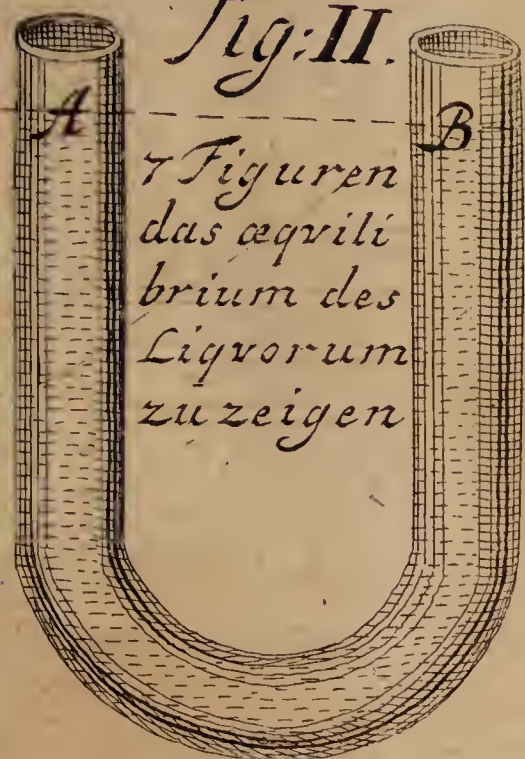 Fig: II.
A
B
7 Figuren
das æqvili
brium des
Liqvorum
zu zeigen